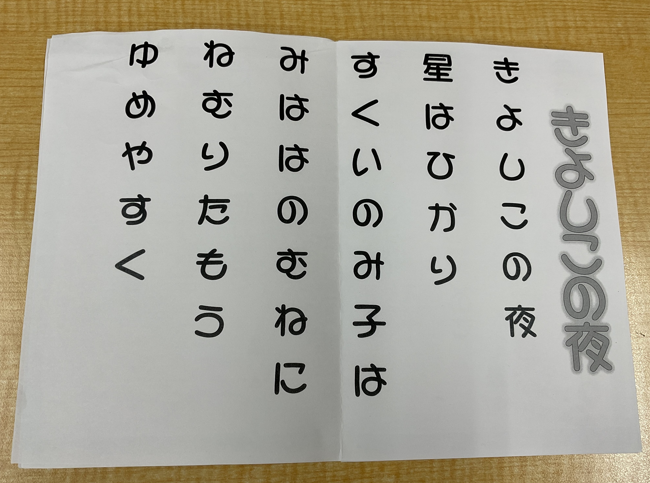 きよしこの夜
きよしこの夜
星はひかり
すくいのみ子は
みははのむねに
ねむりたもう
ゆめやすく